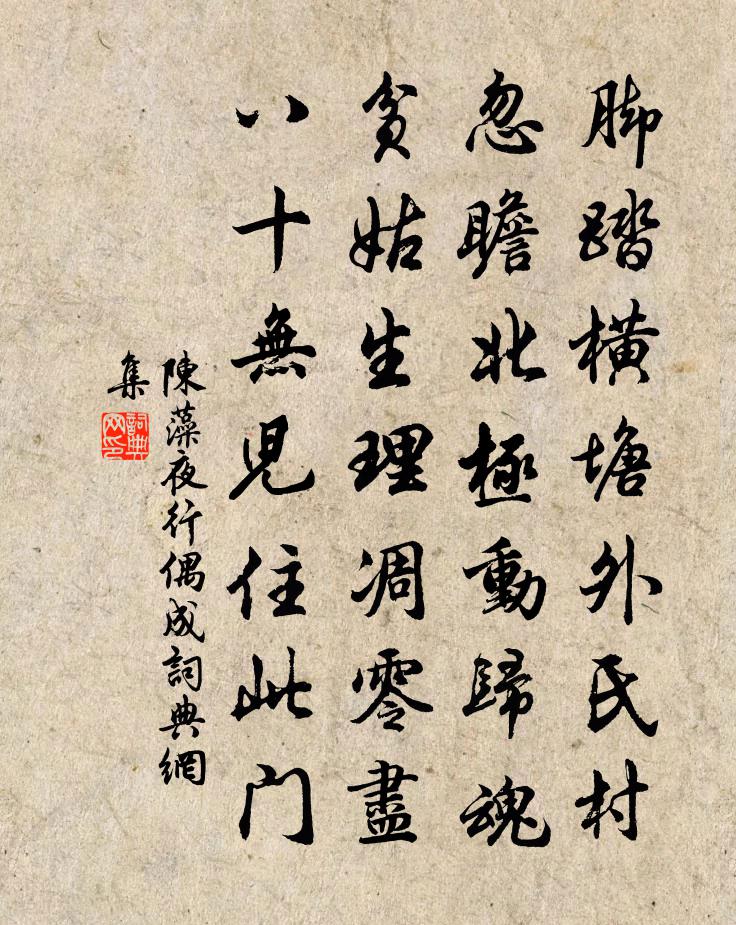 脚踏橫塘外民村
忽瞻北極動歸魂
貧姑生理凋零盡
八十無兒住此门
陳藻夜行偶成詞典網
集
詞典
网印